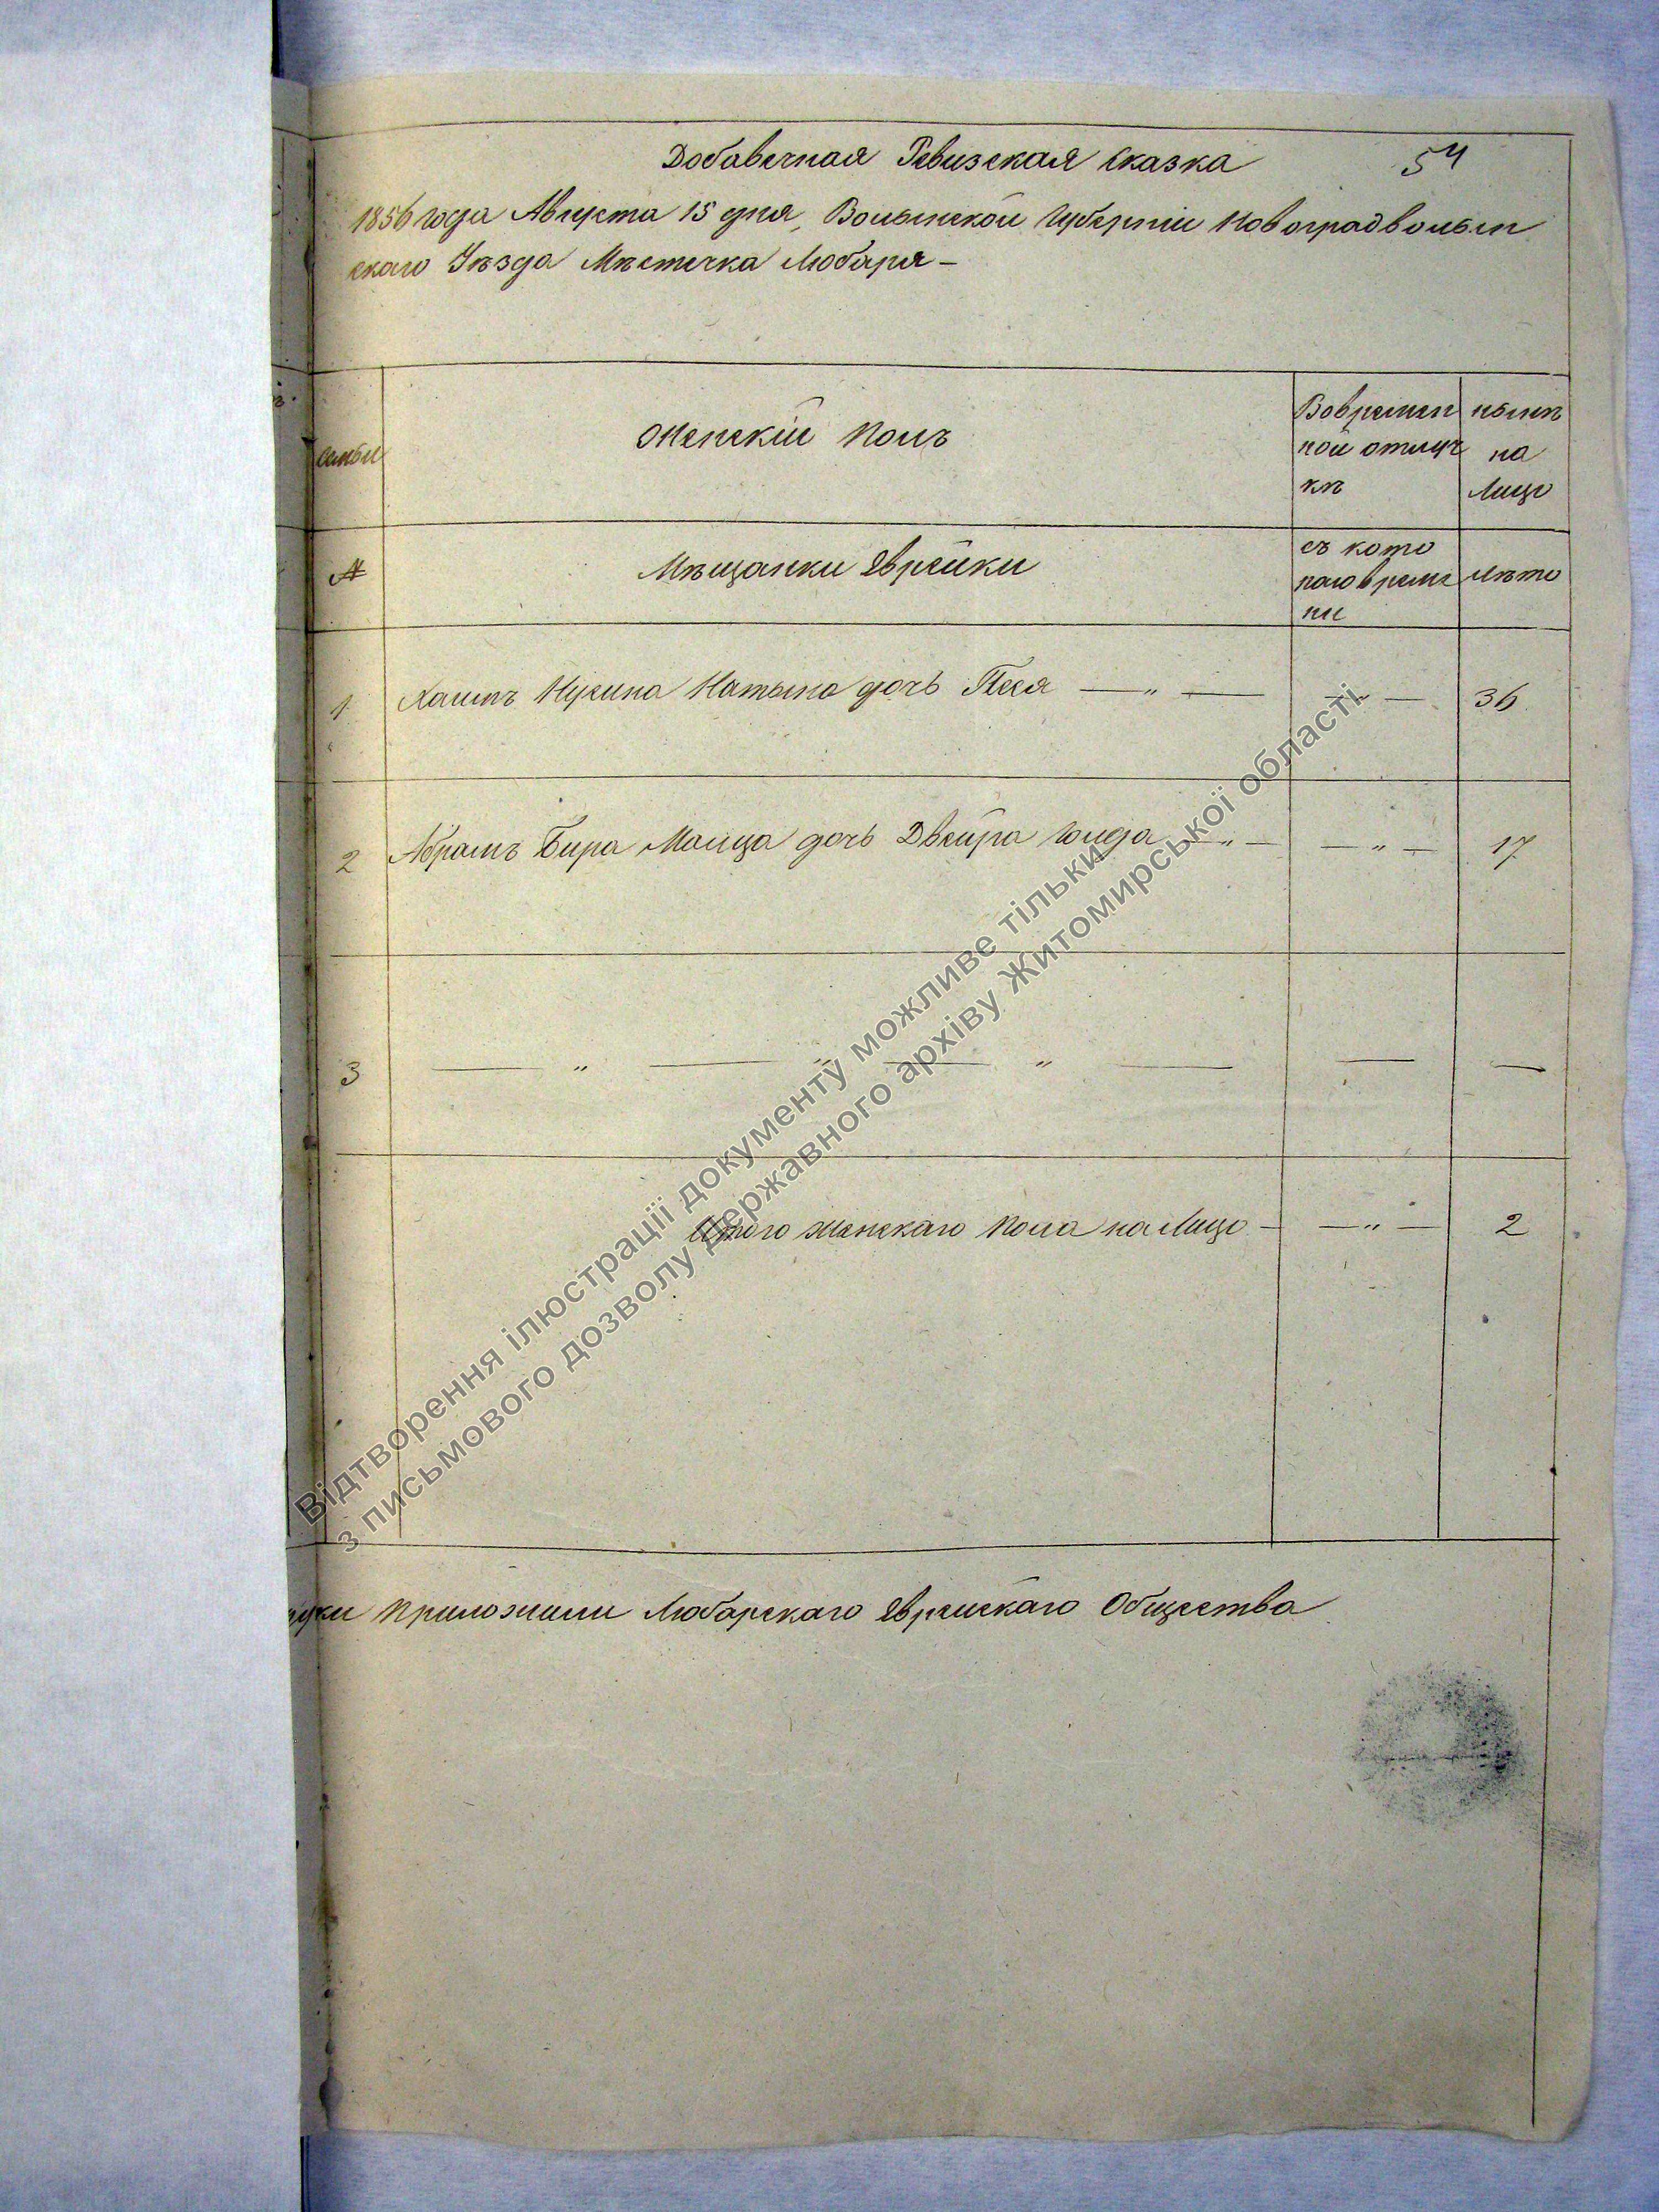 Добавечная Ревизская Сказка
54
1856 года Августа 15 дня, Волынской Губерніи Новоградволын
скаго Уѣзда Мѣстечка Любаря —
семьи
Женскій Полъ
Вовремен
ной отлуч
кѣ
нынѣ
на
Лицо
№
Мѣщанки Еврейки
съ кото
раго време
ни
лѣто
1
Хаимъ Нусина дочь Песя — „ —
— „ —
36
2
Абрамъ Бира дочь Двейра Голда — „ —
— „ —
17
3
— „ — „ — „ —
—
—
Итого женскаго Пола на Лицо —
— „ —
2
руки приложили Любарскаго Еврейскаго Общества
Відтворення ілюстрації документу можливе тільки
з письмового дозволу Державного архіву Житомирської області